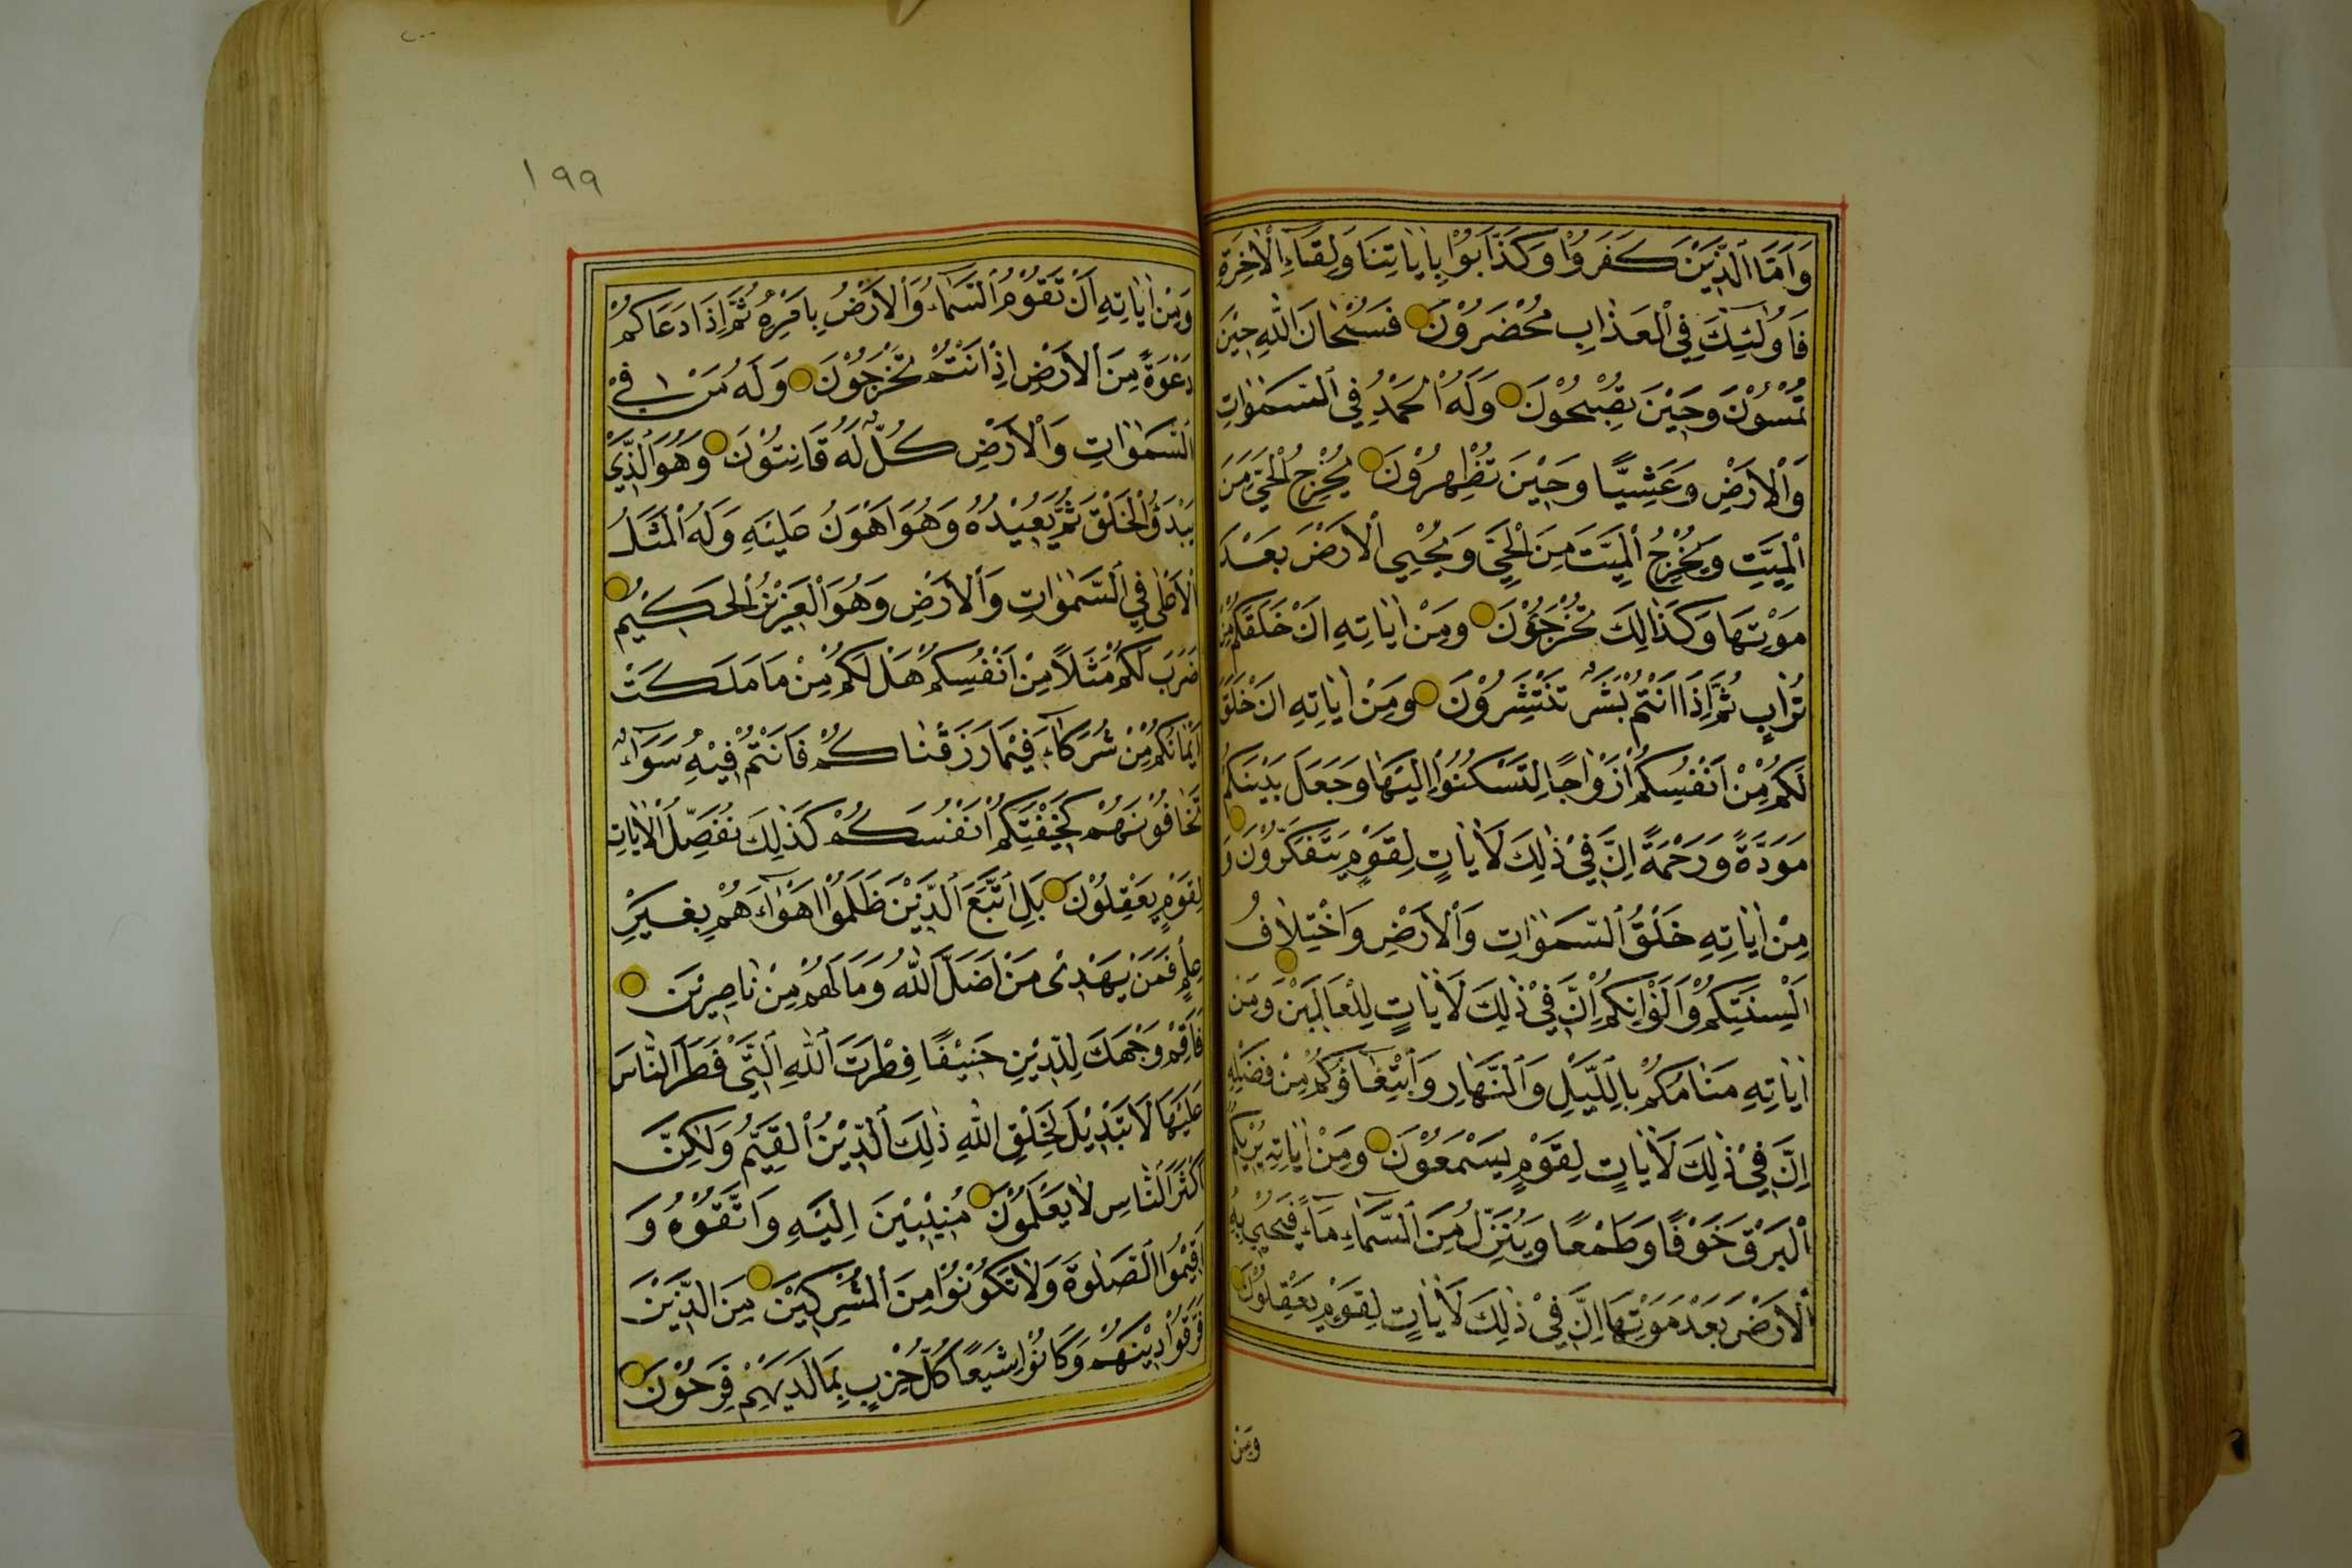 وَاَمَّا الَّذِيْنَ كَفَرُوْا وَكَذَّابُوْا بِاٰيَاتِنَا وَلِقَاۤءِ الْاٰخِرَةِ
فَاُولٰۤئِكَ فِي الْعَذَابِ مُحْضَرُوْنَ فَسُبْحَانَ اللّٰهِ حِيْنَ
تُمْسُوْنَ وَحِيْنَ تُصْبِحُوْنَ وَلَهُ الْحَمْدُ فِي السَّمٰوَاتِ
وَالْاَرْضِ وَعَشِيًّا وَحِيْنَ تُظْهِرُوْنَ يُخْرِجُ الْحَيَّ مِنَ
الْمَيِّتِ وَيُخْرِجُ الْمَيِّتَ مِنَ الْحَيِّ وَيُحْيِي الْاَرْضَ بَعْدَ
مَوْتِهَا وَكَذَالِكَ تُخْرَجُوْنَ وَمِنْ اٰيَاتِهِ اَنْ خَلَقَكُمْ مِنْ
تُرَابٍ ثُمَّ اِذَا اَنْتُمْ بَشَرٌ تَنْتَشِرُوْنَ وَمِنْ اٰيَاتِهِ اَنْ خَلَقَ
لَكُمْ مِنْ اَنْفُسِكُمْ اَزْوَاجًا لِتَسْكُنُوْا اِلَيْهَا وَجَعَلَ بَيْنَكُمْ
مَوَدَّةً وَرَحْمَةً اِنَّ فِيْ ذٰلِكَ لَاٰيَاتٍ لِقَوْمٍ يَتَفَكَّرُوْنَ وَ
مِنْ اٰيَاتِهِ خَلْقُ السَّمٰوَاتِ وَالْاَرْضِ وَاخْتِلَافُ
اَلْسِنَتِكُمْ وَاَلْوَانِكُمْ اِنَّ فِيْ ذٰلِكَ لَاٰيَاتٍ لِلْعَالَمِيْنَ وَمِنْ
اٰيَاتِهِ مَنَامُكُمْ بِالَّيْلِ وَالنَّهَارِ وَابْتِغَاؤُكُمْ مِنْ فَضْلِهِ
اِنَّ فِيْ ذٰلِكَ لَاٰيَاتٍ لِقَوْمٍ يَسْمَعُوْنَ وَمِنْ اٰيَاتِهِ يُرِيْكُمُ
الْبَرْقَ خَوْفًا وَطَمَعًا وَيُنَزِّلُ مِنَ السَّمَاۤءِ مَاۤءً فَيُحْيِيْ بِهِ
الْاَرْضَ بَعْدَ مَوْتِهَا اِنَّ فِيْ ذٰلِكَ لَاٰيَاتٍ لِقَوْمٍ يَعْقِلُوْنَ
وَمِنْ
١٩٩
وَمِنْ اٰيَاتِهِ اَنْ تَقُوْمَ السَّمَاۤءُ وَالْاَرْضُ بِاَمْرِهِ ثُمَّ اِذَا دَعَاكُمْ
دَعْوَةً مِنَ الْاَرْضِ اِذَا اَنْتُمْ تَخْرُجُوْنَ وَلَهُ مَنْ فِي
السَّمٰوَاتِ وَالْاَرْضِ كُلٌّ لَهُ قَانِتُوْنَ وَهُوَ الَّذِيْ
يَبْدَؤُ الْخَلْقَ ثُمَّ يُعِيْدُهُ وَهُوَ اَهْوَنُ عَلَيْهِ وَلَهُ الْمَثَلُ
الْاَعْلٰى فِي السَّمٰوَاتِ وَالْاَرْضِ وَهُوَ الْعَزِيْزُ الْحَكِيْمُ
ضَرَبَ لَكُمْ مَثَلًا مِنْ اَنْفُسِكُمْ هَلْ لَكُمْ مِنْ مَا مَلَكَتْ
اَيْمَانُكُمْ مِنْ شُرَكَاۤءَ فِيْمَا رَزَقْنَاكُمْ فَاَنْتُمْ فِيْهِ سَوَاۤءٌ
تَخَافُوْنَهُمْ كَخِيْفَتِكُمْ اَنْفُسَكُمْ كَذٰلِكَ نُفَصِّلُ الْاٰيَاتِ
لِقَوْمٍ يَعْقِلُوْنَ بَلِ اتَّبَعَ الَّذِيْنَ ظَلَمُوْا اَهْوَاۤءَهُمْ بِغَيْرِ
عِلْمٍ فَمَنْ يَهْدِيْ مَنْ اَضَلَّ اللّٰهُ وَمَا لَهُمْ مِنْ نَاصِرِيْنَ
فَاَقِمْ وَجْهَكَ لِلدِّيْنِ حَنِيْفًا فِطْرَتَ اللّٰهِ الَّتِيْ فَطَرَ النَّاسَ
عَلَيْهَا لَا تَبْدِيْلَ لِخَلْقِ اللّٰهِ ذٰلِكَ الدِّيْنُ الْقَيِّمُ وَلٰكِنَّ
اَكْثَرَ النَّاسِ لَا يَعْلَمُوْنَ مُنِيْبِيْنَ اِلَيْهِ وَاتَّقُوْهُ وَ
اَقِيْمُوا الصَّلٰوةَ وَلَا تَكُوْنُوْا مِنَ الْمُشْرِكِيْنَ مِنَ الَّذِيْنَ
فَرَّقُوْا دِيْنَهُمْ وَكَانُوْا شِيَعًا كُلُّ حِزْبٍ بِمَا لَدَيْهِمْ فَرِحُوْنَ